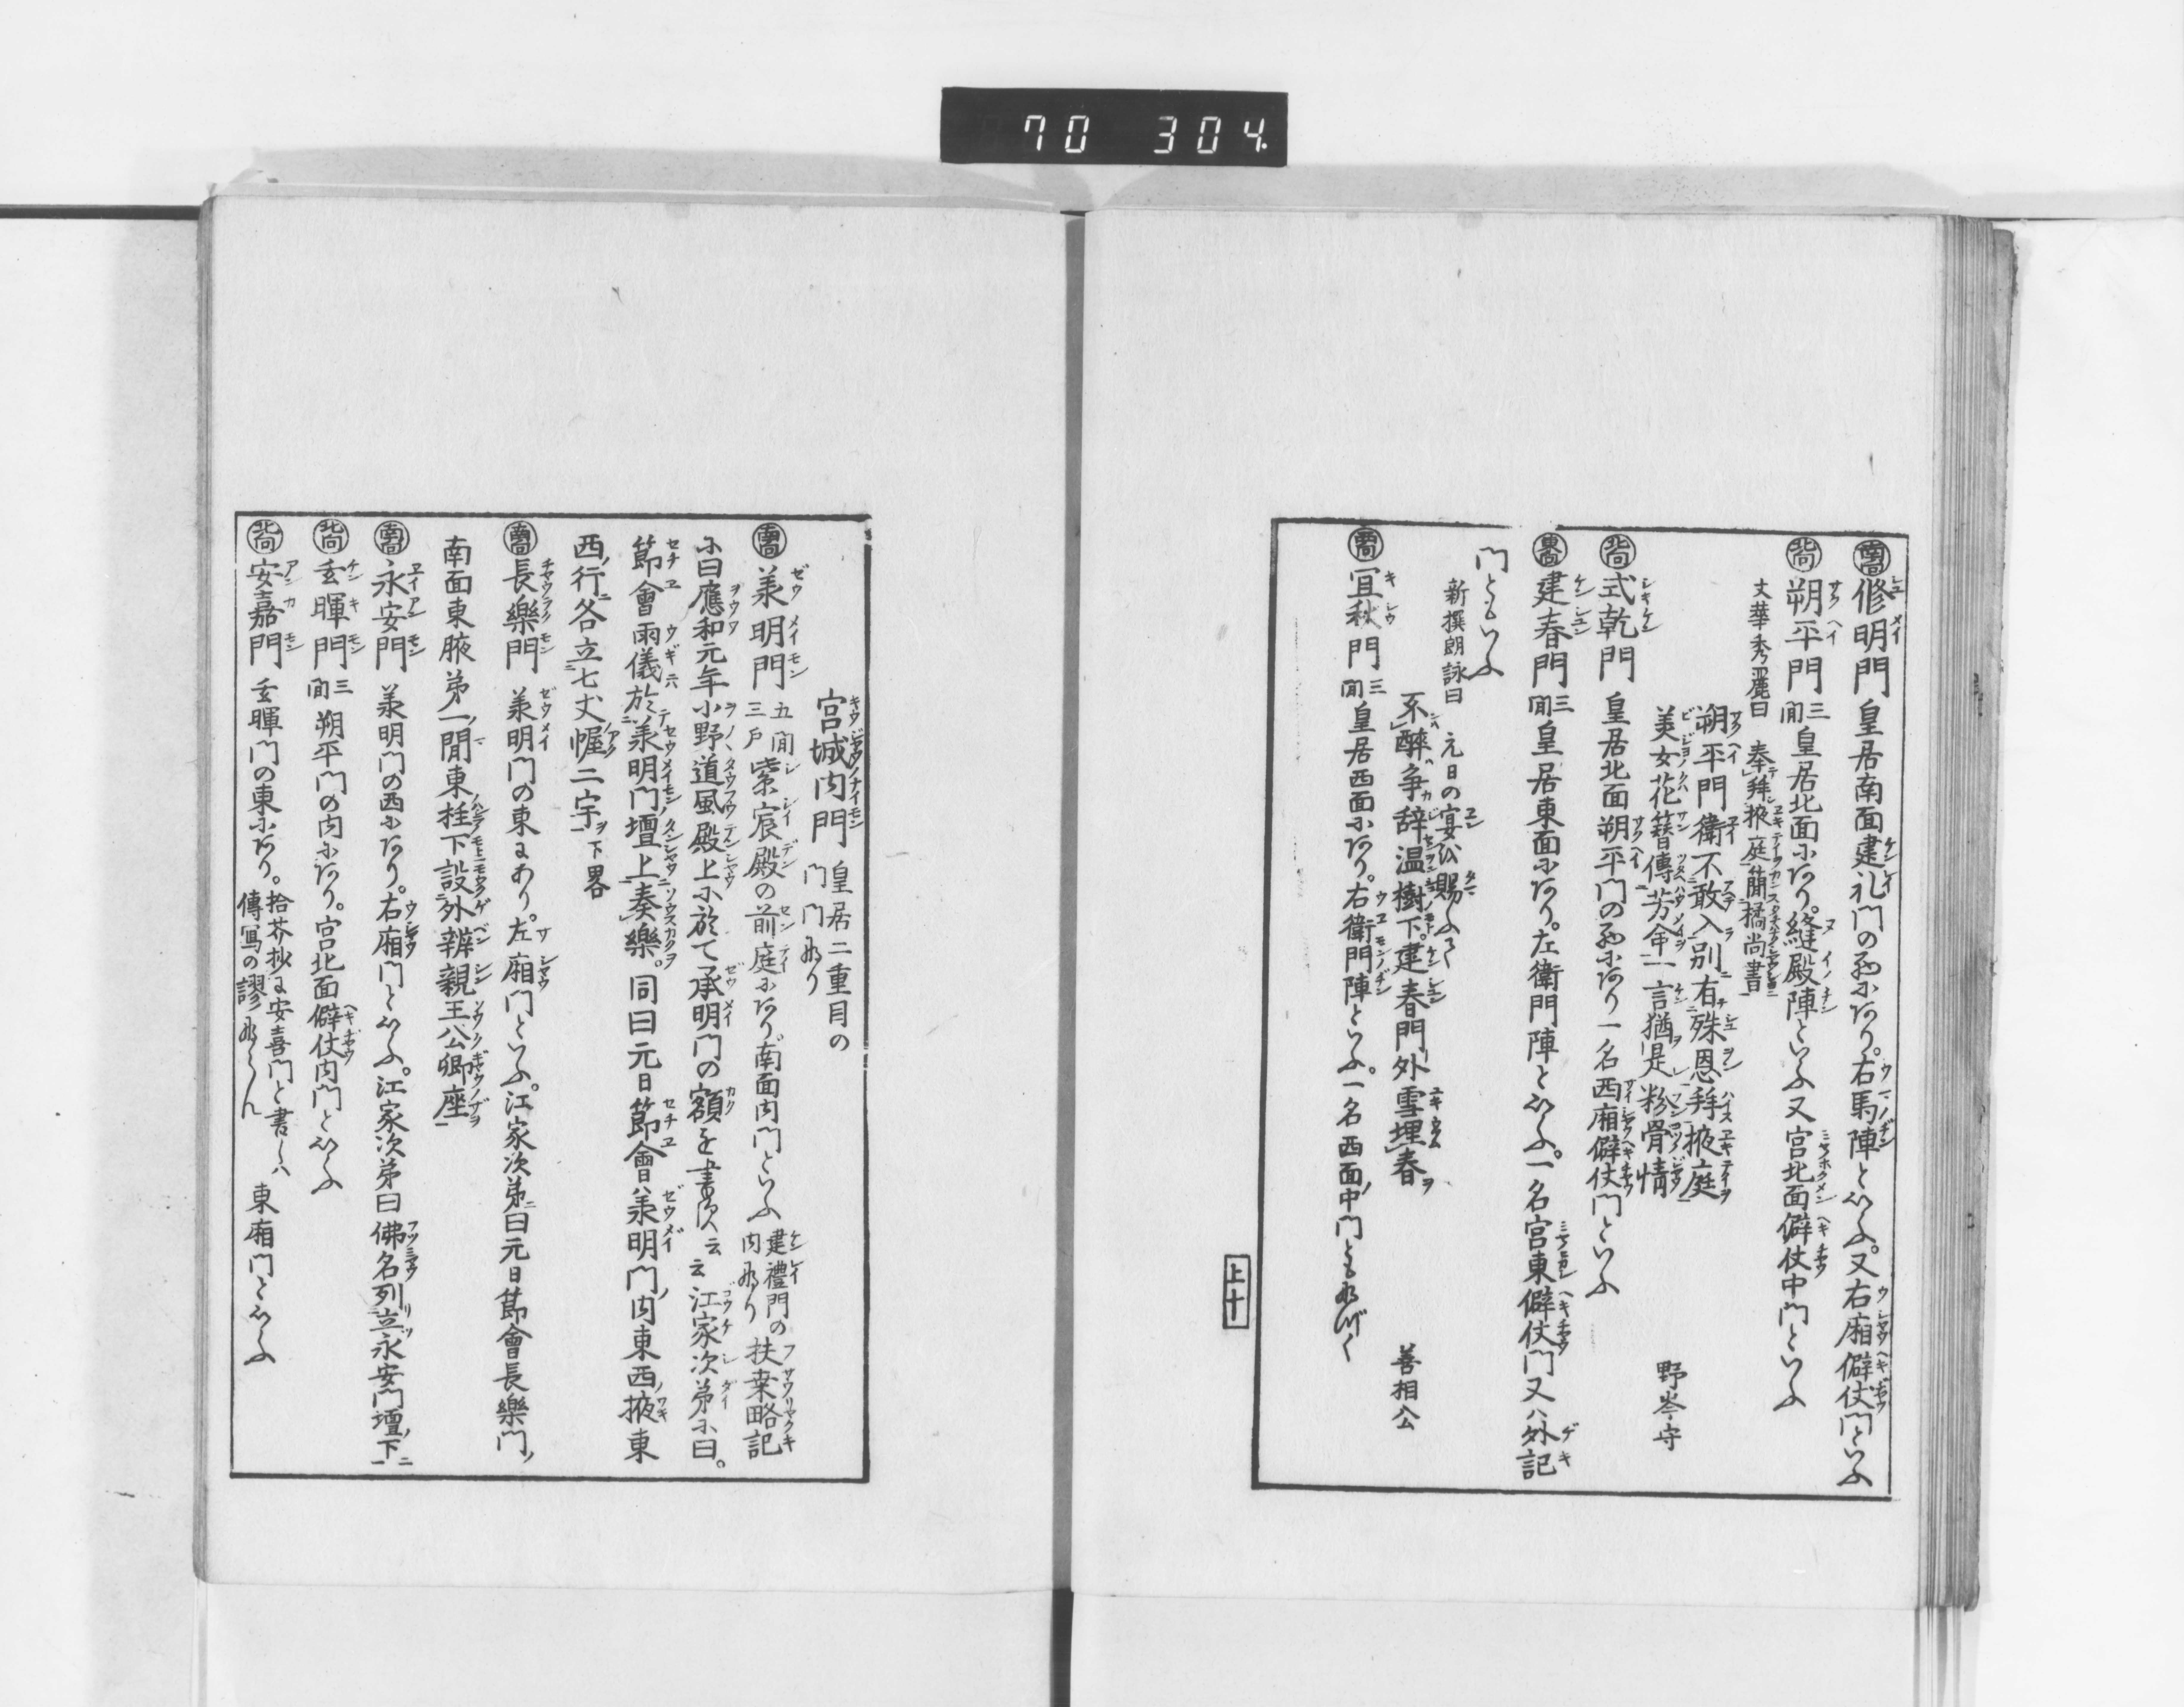 70 304.
南向 修明門 皇居南面建礼門の西にあり。右馬陣といふ。又右廂僻仗門といふ
北向 朔平門 三間 皇居北面にあり。縫殿陣といふ又宮北面僻仗中門といふ
文華秀麗曰 奉拜掖庭簡橘尚書
朔平門衛不敢入別有殊恩拜掖庭
美女花簪傳芳命一言猶是粉骨情 野岑守
北向 式乾門 皇居北面朔平門の西にあり一名西廂僻仗門といふ
東向 建春門 三間 皇居東面にあり。左衛門陣といふ。一名宮東僻仗門又ハ外記
門ともいふ
新撰朗詠曰 元日の宴に賜ふて
不醉争辞温樹下。建春門外雪埋春 善相公
西向 宜秋門 三間 皇居西面にあり。右衛門陣といふ。一名西面中門とも
上十
宮城内門 皇居二重目の門門なり
南向 羕明門 五間三戸 紫宸殿の前庭にあり。南面内門といふ 建禮門の内なり 扶桒略記
に曰應和元年小野道風殿上に於て承明門の額を書す云云江家次第に曰。
節會雨儀於羕明門壇上奏樂。同曰元日節會ハ羕明門内東西掖東
西行各立七丈幄二宇下畧
南向 長樂門 羕明門の東にあり。左廂門といふ。江家次第曰元日節會長樂門
南面東腋第一間東柱下設外辨親王公卿座
南向 永安門 羕明門の西にあり。右廂門といふ。江家次第曰佛名列立永安門壇下
北向 玄暉門 三間 朔平門の内にあり。宮北面僻仗内門といふ
北向 安嘉門 玄暉門の東にあり。拾芥抄に安喜門と書しハ傳寫の謬ならん 東廂門といふ